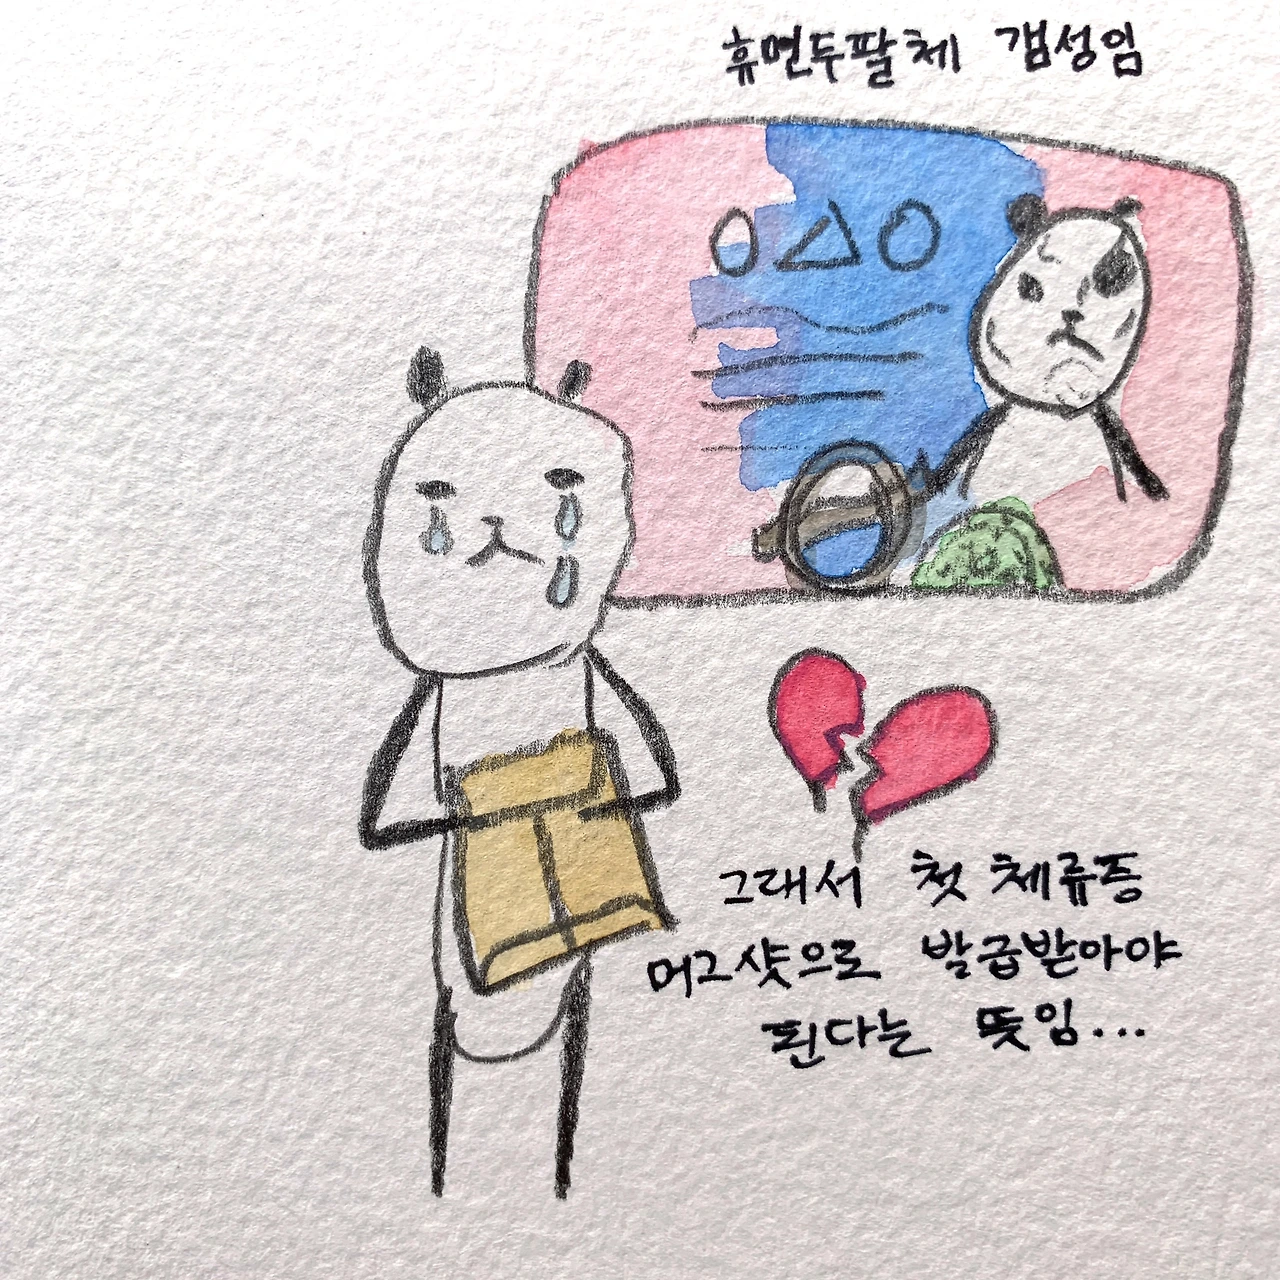 휴면두팔체 갬성임
그래서 첫 체류증
머그샷으로 발급받아야
된다는 뜻임...